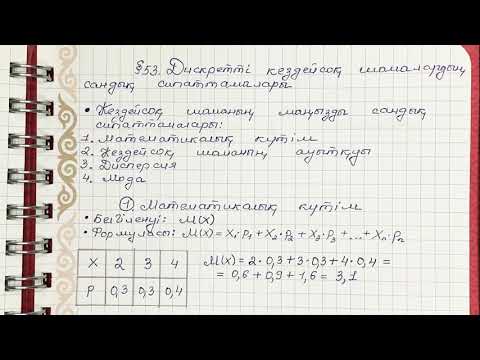 §53. Дискретті кездейсоқ шамалардың
сандық сипаттамалары
• Кездейсоқ шаманың маңызды сандық
сипаттамалары:
1. Математикалық күтім
2. Кездейсоқ шаманың ауытқуы
3. Дисперсия
4. Мода
① Математикалық күтім
• Белгіленуі: M(X)
• Формуласы: M(X) = X₁·P₁ + X₂·P₂ + X₃·P₃ + ... + Xₙ·Pₙ
X 2 3 4
P 0,3 0,3 0,4
M(X) = 2·0,3 + 3·0,3 + 4·0,4 =
= 0,6 + 0,9 + 1,6 = 3,1